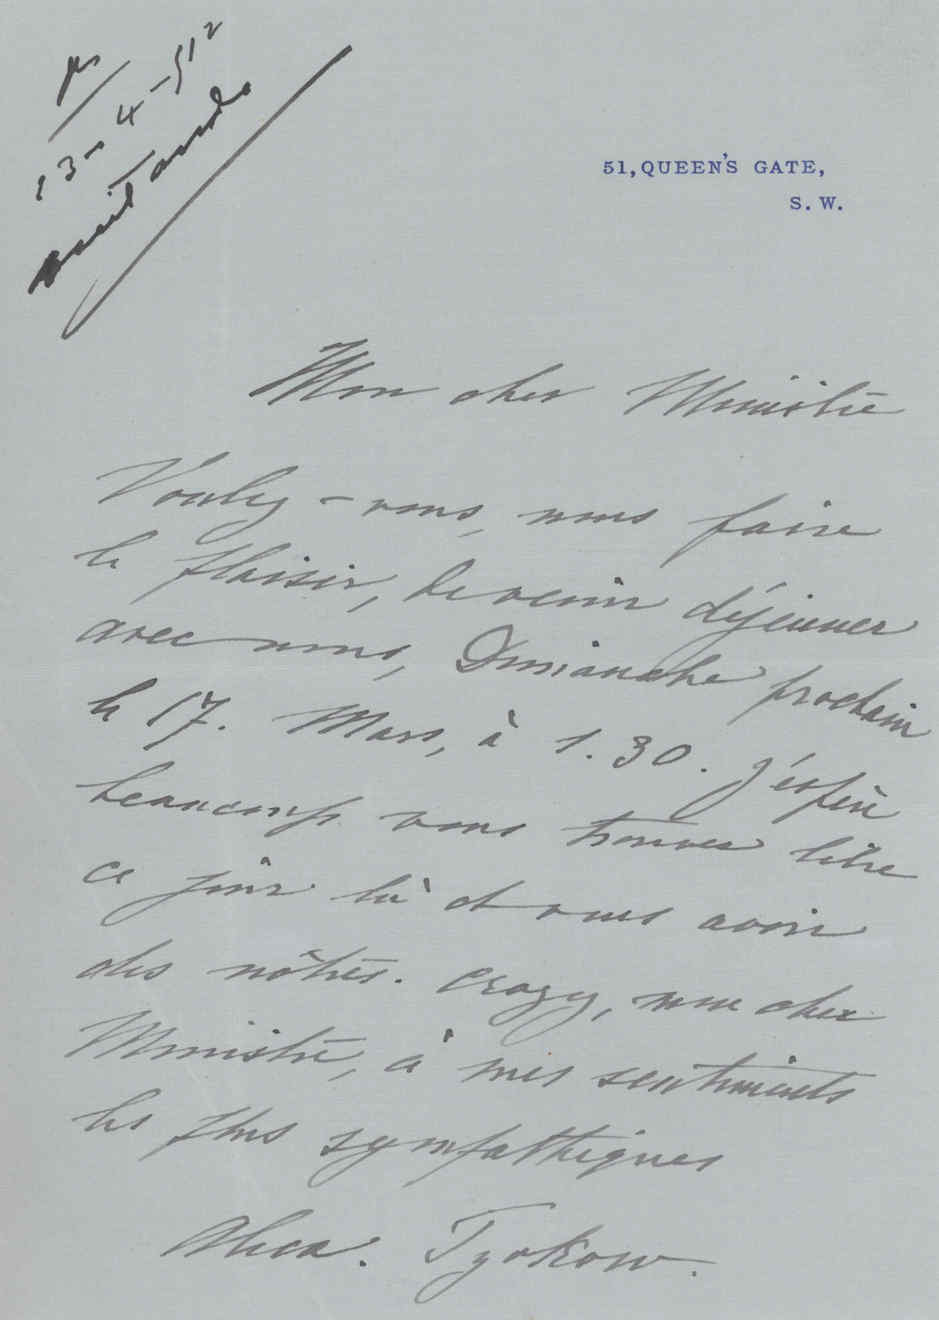 13-4-51²
51, QUEEN'S GATE,
S. W.
Mon cher Ministre
Voulez-vous, nous faire
le plaisir, de venir déjeuner
avec nous, Dimanche prochain
le 17. Mars, à 1.30. J'espère
beaucoup vous trouver libre
ce jour là et vous avoir
des nôtres. Croyez, mon cher
Ministre, à mes sentiments
les plus sympathiques